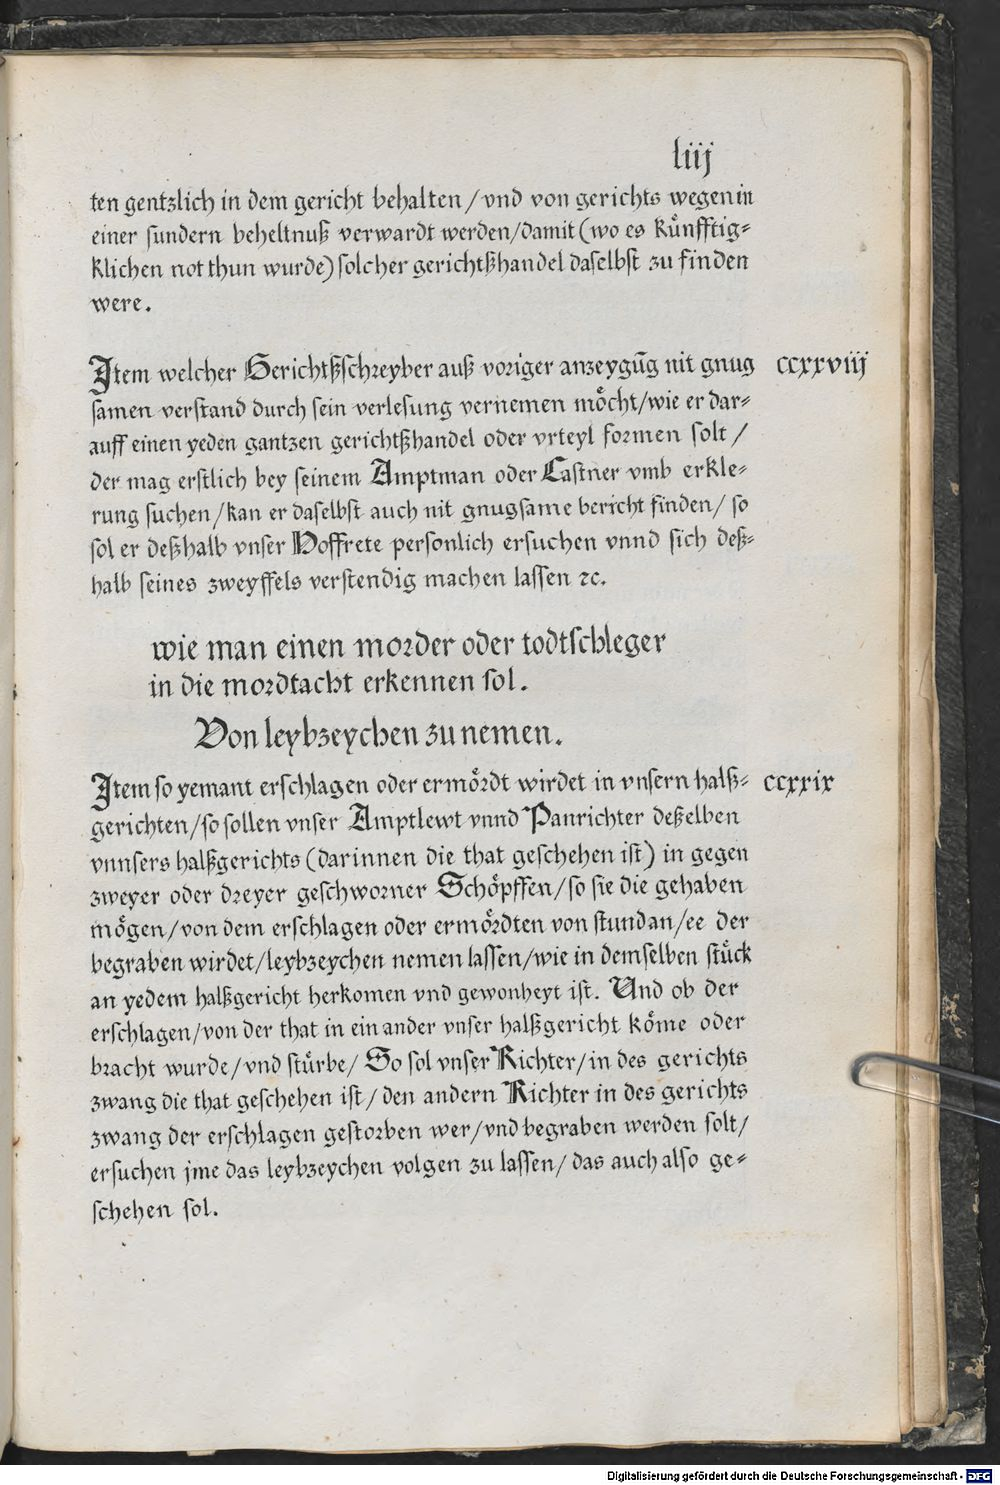 liij
ten gentzlich in dem gericht behalten / vnd von gerichts wegen in
einer sundern beheltnuß verwardt werden/damit (wo es kuͤnfftig⸗
klichen not thun wurde) solcher gerichtßhandel daselbst zu finden
were.
Item welcher Gerichtßschreyber auß voriger anzeygūg nit gnug ccxxviij
samen verstand durch sein verlesung vernemen moͤcht/wie er dar⸗
auff einen yeden gantzen gerichtßhandel oder vrteyl formen solt /
der mag erstlich bey seinem Amptman oder Castner vmb erkle⸗
rung suchen/kan er daselbst auch nit gnugsame bericht finden/ so
sol er deßhalb vnser Hoffrete personlich ersuchen vnnd sich deß⸗
halb seines zweyffels verstendig machen lassen ꝛc.
wie man einen morder oder todtschleger
in die mordtacht erkennen sol.
Von leybzeychen zu nemen.
Item so yemant erschlagen oder ermoͤrdt wirdet in vnsern halß⸗ ccxxix
gerichten/so sollen vnser Amptlewt vnnd Panrichter deßelben
vnnsers halßgerichts (darinnen die that geschehen ist) in gegen
zweyer oder dreyer geschworner Schoͤpffen/so sie die gehaben
moͤgen/von dem erschlagen oder ermoͤrdten von stundan/ee der
begraben wirdet/leybzeychen nemen lassen/wie in demselben stuͤck
an yedem halßgericht herkomen vnd gewonheyt ist. Und ob der
erschlagen/von der that in ein ander vnser halßgericht koͤme oder
bracht wurde/vnd stuͤrbe/ So sol vnser Richter/in des gerichts
zwang die that geschehen ist/ den andern Richter in des gerichts
zwang der erschlagen gestorben wer/vnd begraben werden solt/
ersuchen jme das leybzeychen volgen zu lassen/ das auch also ge⸗
schehen sol.
Digitalisierung gefördert durch die Deutsche Forschungsgemeinschaft - DFG